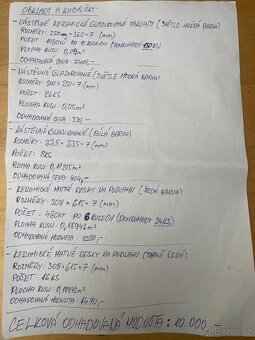 OBKLADY A KACHLIČKY:
- NÁSTĚNNÉ KERAMICKÉ GLAZOROVANÉ OBKLADY (SVĚTLE HNĚDÁ BARVA)
ROZMĚRY: 250 × 360 × 7 (mm)
POČET KUSECH (DOHROMADY KS)
PLOCHA KUSU: 0,09m²
ODHADOVANÁ CENA:
- NÁSTĚNNÉ GLAZUROVANÉ (SVĚTLE MODRÁ BARVA)
ROZMĚRY: 200 × 250 × 7 (mm)
POČET: 26KS
PLOCHA KUSU: 0,05m²
ODHADOVANÁ CENA: 530,-
- NÁSTĚNNÉ GLAZUROVANÉ (BÍLÁ BARVA)
ROZMĚRY: 335 × 335 × 7 (mm)
POČET: 8KS
PLOCHA KUSU: 0,11225m²
ODHADOVANÁ CENA: 404,-
- KERAMICKÉ MATNÉ DESKY NA PODLAHU (ŠEDÁ BARVA)
ROZMĚRY: 308 × 615 × 7 (mm)
POČET: 4BOXY PO 6 KUSECH (DOHROMADY 24KS)
PLOCHA KUSU: 0,18942m²
ODHADOVANÁ HODNOTA: 2200,-
- KERAMICKÉ MATNÉ DESKY NA PODLAHU (TMAVĚ ŠEDÉ)
ROZMĚRY: 308 × 615 × 7 (mm)
POČET: 16KS
PLOCHA KUSU: 0,18942m²
ODHADOVANÁ HODNOTA: 1470,-
CELKOVÁ ODHADOVANÁ HODNOTA: 10.000,-